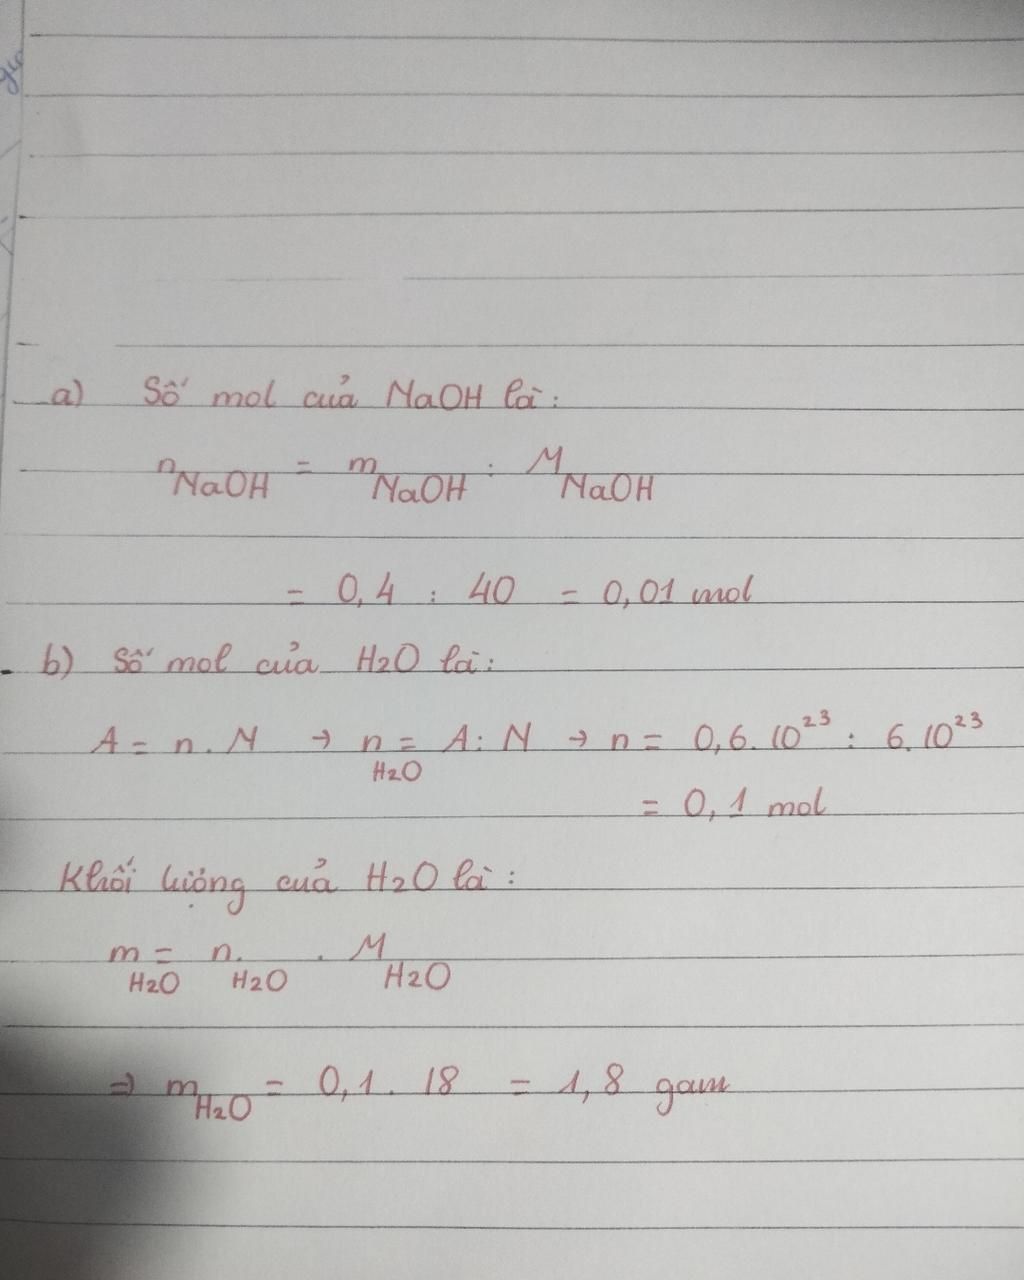 a) Số mol của NaOH là:
nNaOH = mNaOH : MNaOH
= 0,4 : 40 = 0,01 mol
b) Số mol của H2O là:
A = n . N → nH2O = A : N → n = 0,6.10²³ : 6.10²³
= 0,1 mol
Khối lượng của H2O là:
mH2O = n.H2O . MH2O
⇒ mH2O = 0,1 . 18 = 1,8 gam